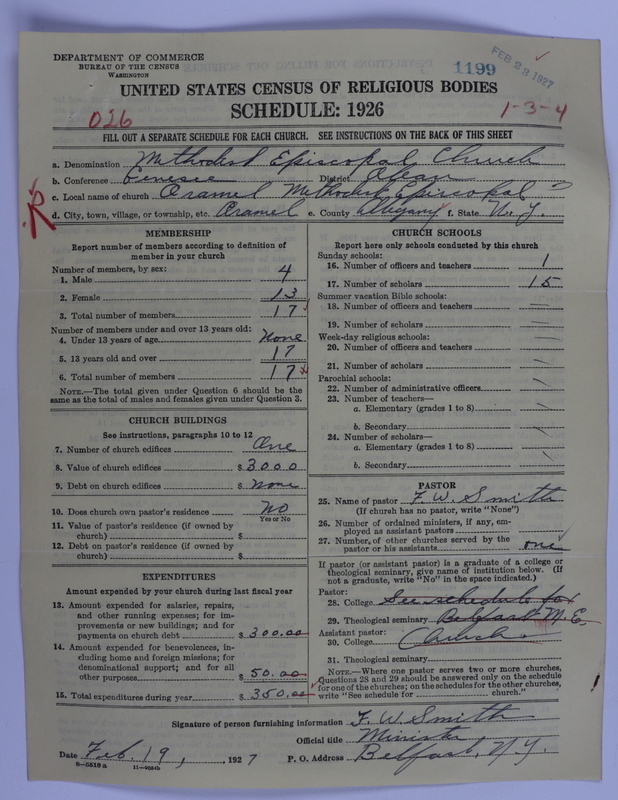 DEPARTMENT OF COMMERCE
BUREAU OF THE CENSUS
WASHINGTON
1199
FEB 23 1927
UNITED STATES CENSUS OF RELIGIOUS BODIES
SCHEDULE: 1926
026
1-3-4
FILL OUT A SEPARATE SCHEDULE FOR EACH CHURCH. SEE INSTRUCTIONS ON THE BACK OF THIS SHEET
a. Denomination Methodist Episcopal Church
b. Conference Genesee District Olean
c. Local name of church Oramel Methodist Episcopal
d. City, town, village, or township, etc. Oramel e. County Allegany f. State N.Y.
MEMBERSHIP
Report number of members according to definition of
member in your church
Number of members, by sex:
1. Male 4
2. Female 13
3. Total number of members 17
Number of members under and over 13 years old:
4. Under 13 years of age None
5. 13 years old and over 17
6. Total number of members 17
NOTE.—The total given under Question 6 should be the
same as the total of males and females given under Question 3.
CHURCH BUILDINGS
See instructions, paragraphs 10 to 12
7. Number of church edifices One
8. Value of church edifices $ 3000
9. Debt on church edifices $ None
10. Does church own pastor's residence No
Yes or No
11. Value of pastor's residence (if owned by
church) $
12. Debt on pastor's residence (if owned by
church) $
EXPENDITURES
Amount expended by your church during last fiscal year
13. Amount expended for salaries, repairs,
and other running expenses; for im-
provements or new buildings; and for
payments on church debt $ 300.00
14. Amount expended for benevolences, in-
cluding home and foreign missions; for
denominational support; and for all
other purposes $ 50.00
15. Total expenditures during year $ 350.00
CHURCH SCHOOLS
Report here only schools conducted by this church
Sunday schools:
16. Number of officers and teachers 1
17. Number of scholars 15
Summer vacation Bible schools:
18. Number of officers and teachers
19. Number of scholars
Week-day religious schools:
20. Number of officers and teachers
21. Number of scholars
Parochial schools:
22. Number of administrative officers
23. Number of teachers—
a. Elementary (grades 1 to 8)
b. Secondary
24. Number of scholars—
a. Elementary (grades 1 to 8)
b. Secondary
PASTOR
25. Name of pastor F. W. Smith
(If church has no pastor, write "None")
26. Number of ordained ministers, if any, em-
ployed as assistant pastors
27. Number of other churches served by the
pastor or his assistants one
If pastor (or assistant pastor) is a graduate of a college or
theological seminary, give name of institution below. (If
not a graduate, write "No" in the space indicated.)
Pastor:
28. College See schedule for
29. Theological seminary Belfast M. E.
Assistant pastor:
30. College Church
31. Theological seminary
NOTE.—Where one pastor serves two or more churches,
Questions 28 and 29 should be answered only on the schedule
for one of the churches; on the schedules for the other churches,
write "See schedule for church."
Signature of person furnishing information F. W. Smith
Official title Minister
Date Feb. 19, 1927 P. O. Address Belfast, N.Y.